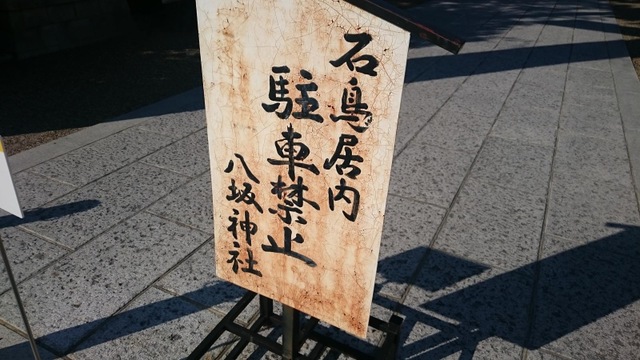 石鳥居内
駐車禁止
八坂神社